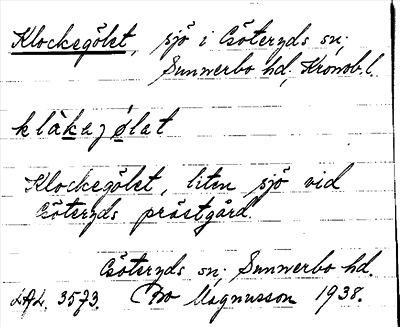 Klockegölet, sjö i Göteryds sn;
Sunnerbo hd, Kronob. l.
klåkejølat
Klockegölet, liten sjö vid
Göteryds prästgård.
Göteryds sn; Sunnerbo hd.
LAL. 3573. Bo Magnusson 1938.